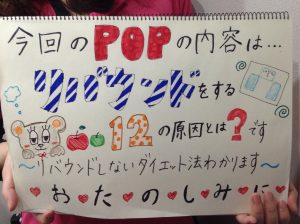 今回のPOPの内容は…
リバウンドをする
12の原因とは?です
~リバウンドしないダイエット法わかります~
おたのしみに